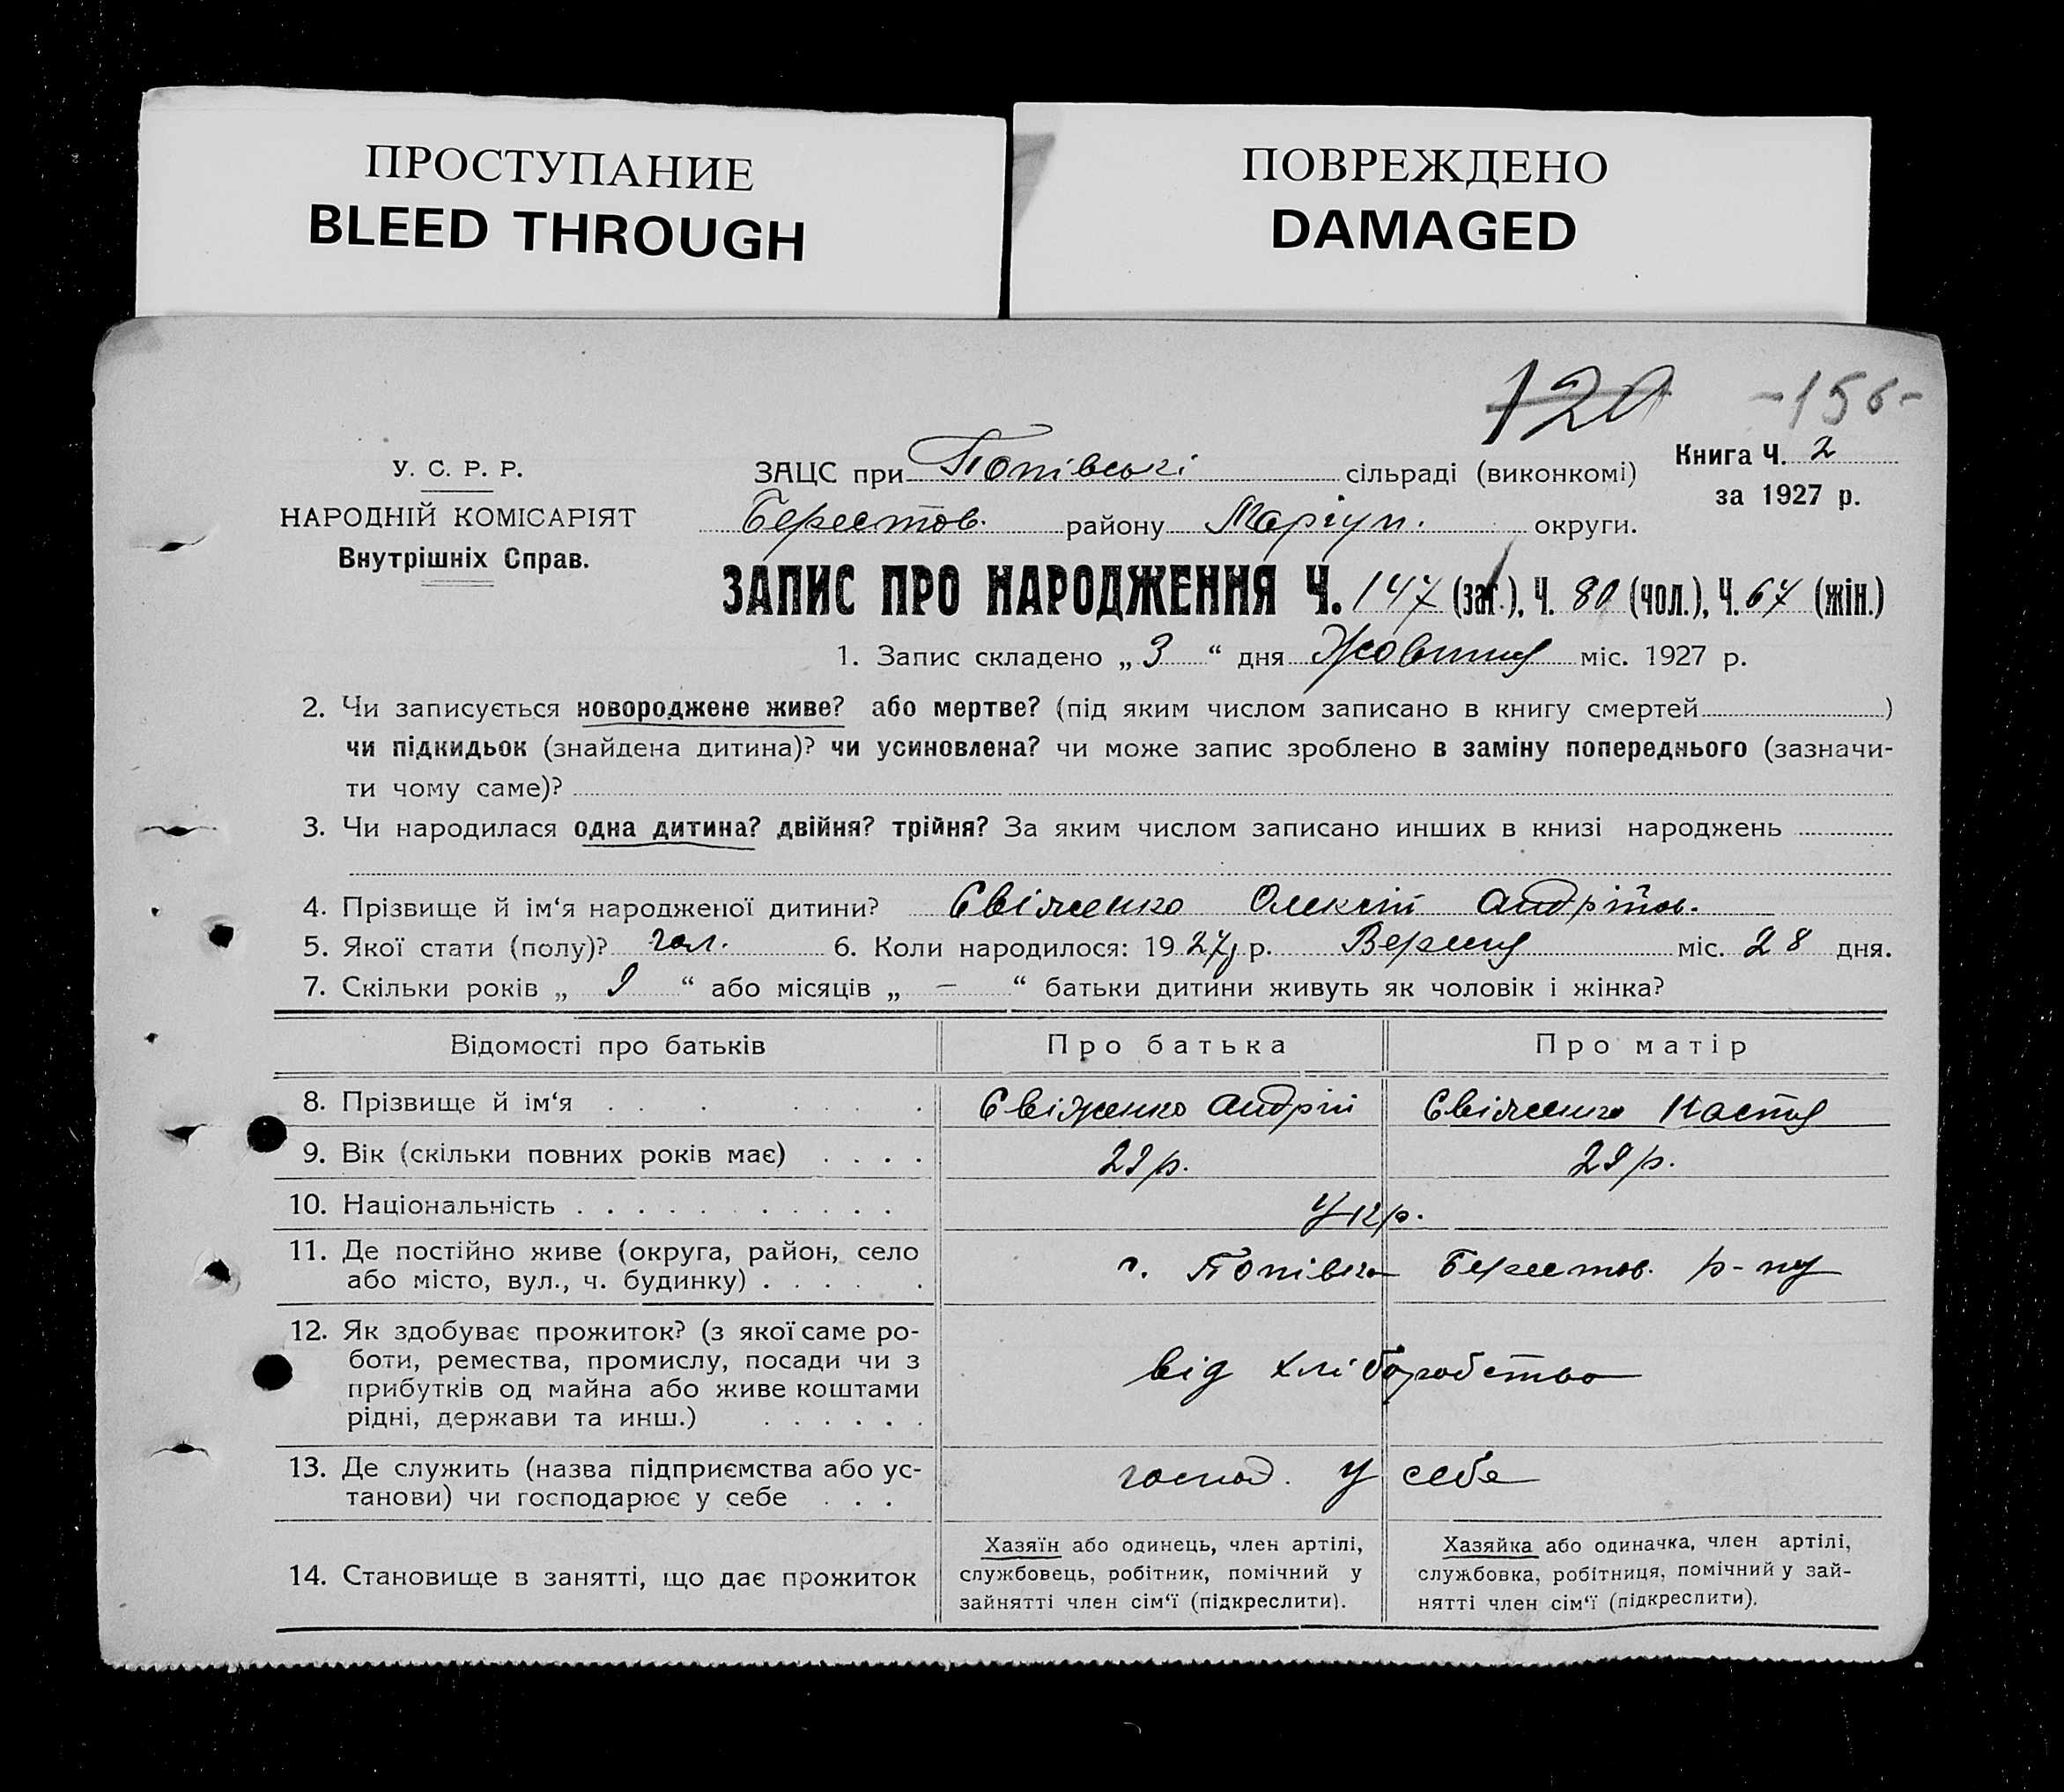 ПРОСТУПАНИЕ
BLEED THROUGH
ПОВРЕЖДЕНО
DAMAGED
120 -156-
У. С. Р. Р.
НАРОДНІЙ КОМІСАРІЯТ
Внутрішніх Справ.
ЗАЦС при Попівські сільраді (виконкомі)
Книга Ч. 2
за 1927 р.
Берестов. району Маріуп. округи.
ЗАПИС ПРО НАРОДЖЕННЯ Ч. 147 (заг.), Ч. 80 (чол.), Ч. 67 (жін.)
1. Запис складено „ 3 “ дня Жовтня міс. 1927 р.
2. Чи записується новороджене живе? або мертве? (під яким числом записано в книгу смертей )
чи підкидьок (знайдена дитина)? чи усиновлена? чи може запис зроблено в заміну попереднього (зазначи-
ти чому саме)?
3. Чи народилася одна дитина? двійня? трійня? За яким числом записано инших в книзі народжень
4. Прізвище й ім‘я народженої дитини? Євіженко Олексій Андрійов.
5. Якої стати (полу)? чол. 6. Коли народилося: 1927 р. Вересня міс. 28 дня.
7. Скільки років „ 9 “ або місяців „ – “ батьки дитини живуть як чоловік і жінка?
Відомості про батьків Про батька Про матір
8. Прізвище й ім‘я . . . . . . . Євіженко Андрій Євіженко Настя
9. Вік (скільки повних років має) . . . . 29 р. 29 р.
10. Національність . . . . . . . . . . . Укр.
11. Де постійно живе (округа, район, село
або місто, вул., ч. будинку) . . . . . с. Попівка Берестов. р-ну
12. Як здобуває прожиток? (з якої саме ро-
боти, ремества, промислу, посади чи з
прибутків од майна або живе коштами
рідні, держави та инш.) . . . . . .
від хліборобства
13. Де служить (назва підприємства або ус-
танови) чи господарює у себе . . .
господ. у себе
14. Становище в занятті, що дає прожиток
Хазяїн або одинець, член артілі,
службовець, робітник, помічний у
зайнятті член сім‘ї (підкреслити).
Хазяйка або одиначка, член артілі,
службовка, робітниця, помічний у зай-
нятті член сім‘ї (підкреслити).